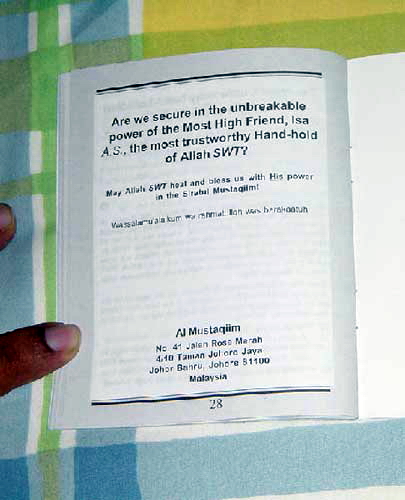 Are we secure in the unbreakable
power of the Most High Friend, Isa
A.S., the most trustworthy Hand-hold
of Allah SWT?
May Allah SWT heal and bless us with His power
in the Siratul Mustaqiim!
Wassalamu'alaikum
Al Mustaqiim
No. 41 Jalan Rose Merah
4/10 Taman Johore Jaya
Johor Bahru, Johore 81100
Malaysia
28